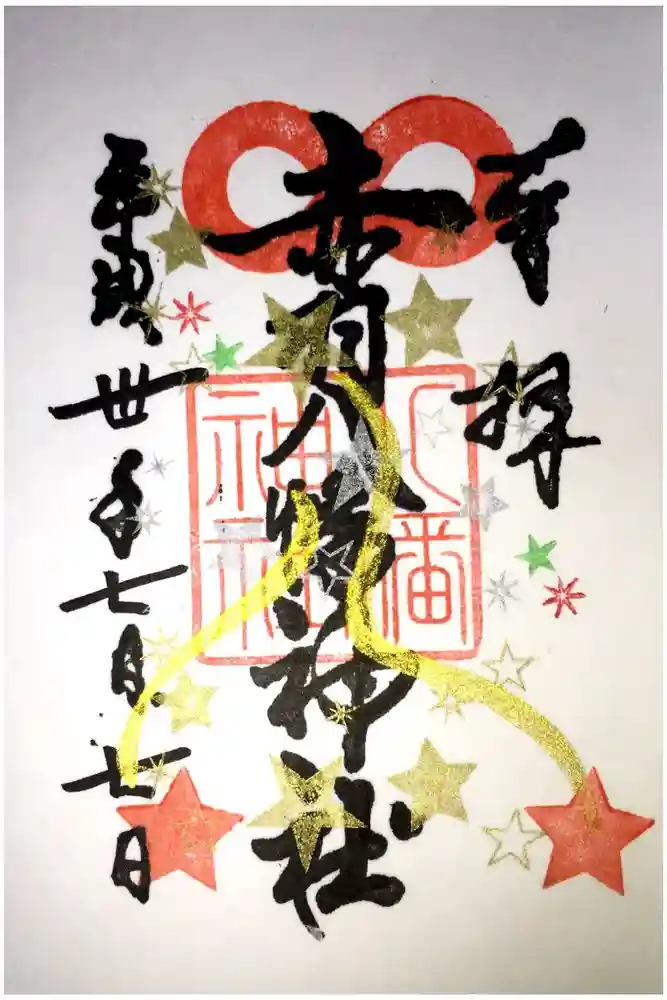 奉拝
赤羽八幡神社
平成丗年七月七日
八幡
神社